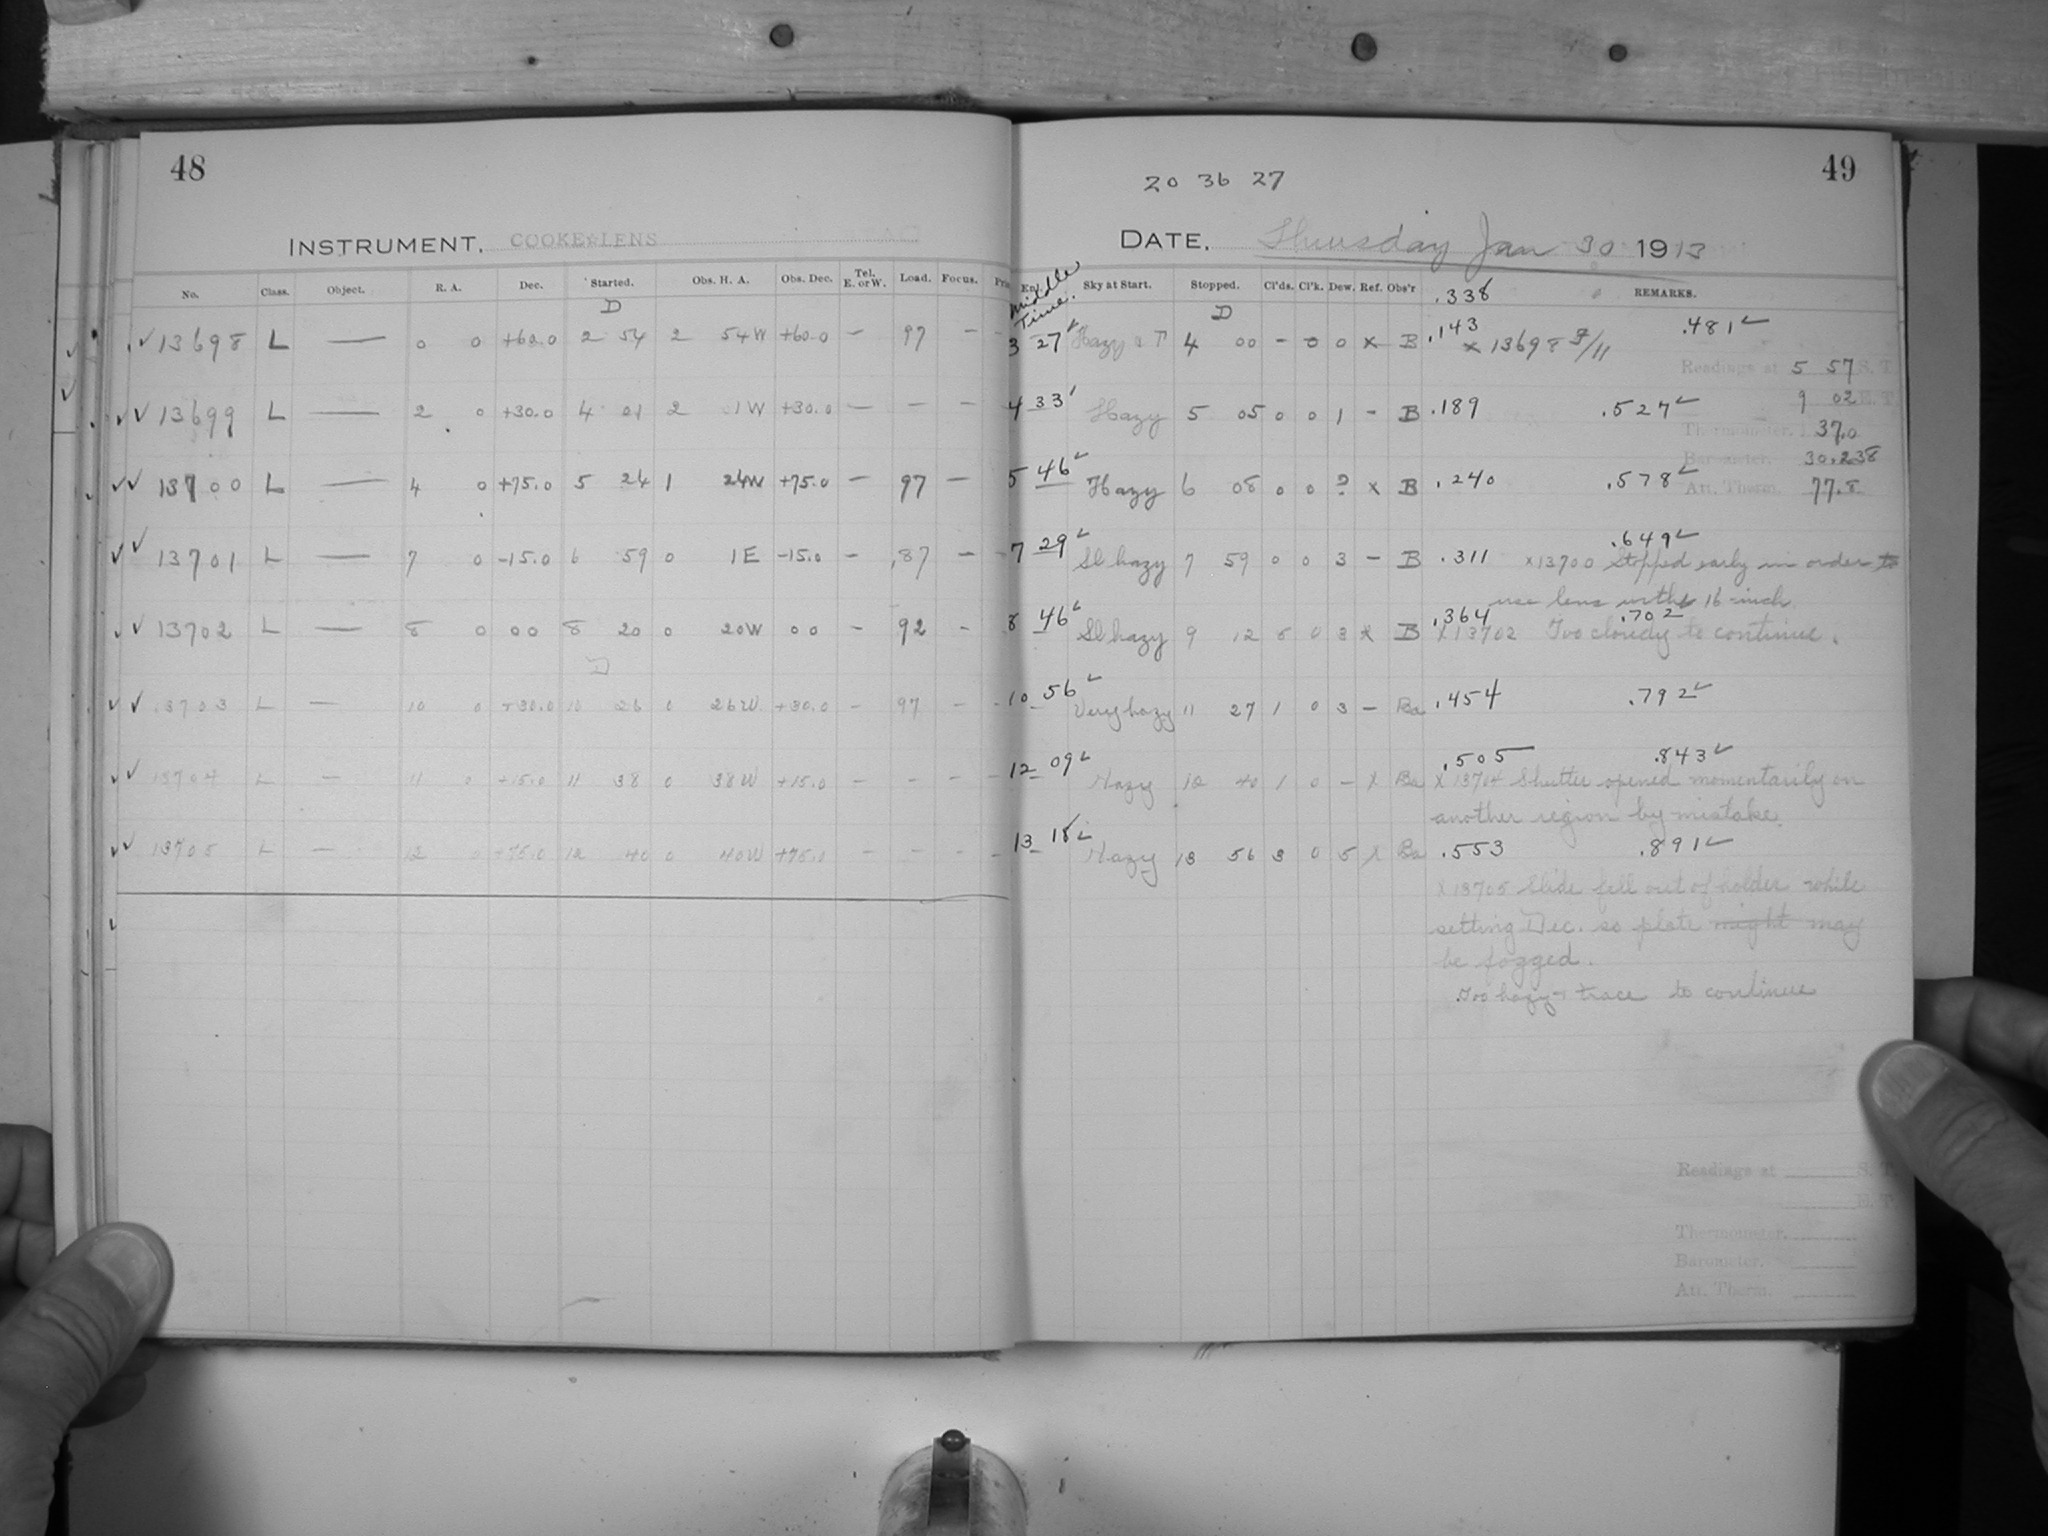 48
INSTRUMENT. COOKE LENS
No. Class. Object. R. A. Dec. Started. Obs. H. A. Obs. Dec. Tel. E. or W. Load. Focus.
D
13698 L — 0 0 +60.0 2 54 2 54W +60.0 — 97 —
13699 L — 2 0 +30.0 4 01 2 01W +30.0 — — —
13700 L — 4 0 +75.0 5 24 1 24W +75.0 — 97 —
13701 L — 7 0 -15.0 6 59 0 1E -15.0 — .87 —
13702 L — 8 0 00 8 20 0 20W 00 — 92 —
D
13703 L — 10 0 +30.0 10 26 0 26W +30.0 — 97 —
13704 L — 11 0 +15.0 11 38 0 38W +15.0 — — —
13705 L — 12 0 +75.0 12 40 0 40W +75.0 — — —
49
20 36 27
DATE. Thursday Jan 30 1913
Middle Time. Sky at Start. Stopped. Cl'ds. Cl'k. Dew. Ref. Obs'r .338 REMARKS.
D
3 27 Hazy 4 00 — 0 0 x B .143 .481
x 13698
Readings at 5 57 S. T.
9 02 E. T.
4 33 Hazy 5 05 0 0 1 — B .189 .527
Thermometer. 37.0
Barometer. 30.238
5 46 Hazy 6 08 0 0 ? x B .240 .578
Att. Therm. 77.8
7 29 Sl hazy 7 59 0 0 3 — B .311 .649
x13700 Stopped early in order to
use lens with 16-inch
8 46 Sl hazy 9 12 0 3 x B .364 .702
x13702 Too cloudy to continue.
10 56 Very hazy 11 27 1 0 3 — Ba .454 .792
12 09 Hazy 12 40 1 0 — x Ba .505 .843
x 13704 Shutter opened momentarily on
another region by mistake
13 18 Hazy 13 56 3 0 5 x Ba .553 .891
x 13705 Slide fell out of holder while
setting Dec. so plate might may
be fogged.
Too hazy + trace to continue
Readings at S. T.
E. T.
Thermometer.
Barometer.
Att. Therm.